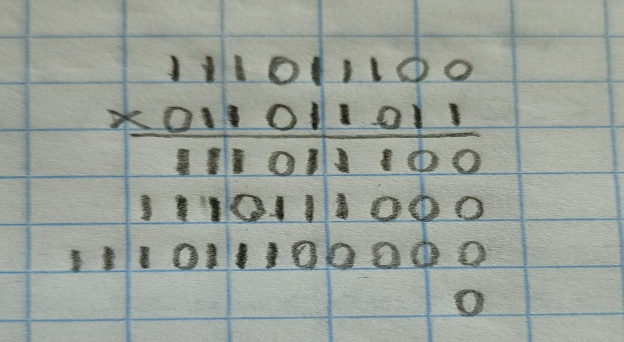 111011100
×011011011
111011100
1110111000
111011100000
0